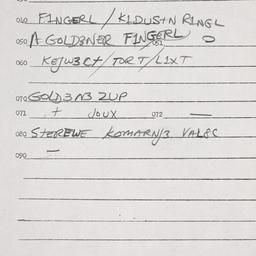 040 FINGERL / KIDUS+N RINGL
050 A GOLD3NER FINGERL 051 O
060 KEJW3C+ / TORT / LIXT
070 GOLD3N3 2UP
071 + JOUX 072 —
080 STEREWE KOMARN/3 VALSC
090 —